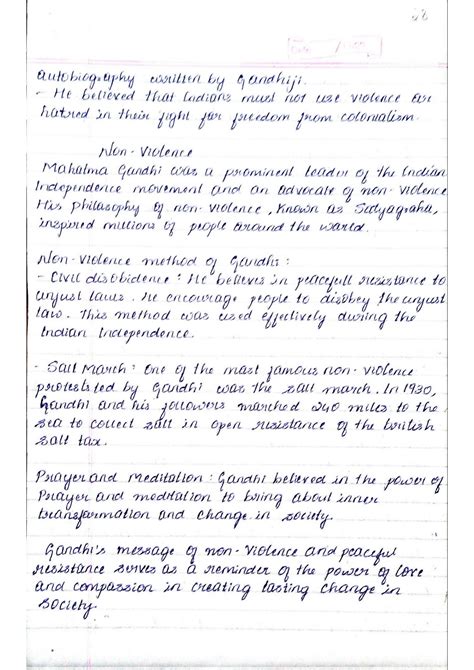 28
autobiography written by Gandhiji.
- He believed that Indians must not use violence or
hatred in their fight for freedom from colonialism.
Non-Violence
Mahatma Gandhi was a prominent leader of the Indian
Independence movement and an advocate of non-violence
His philosophy of non-violence, known as Satyagraha,
inspired millions of people around the world.
Non-violence method of Gandhi:
- Civil disobidence: He believes in peacefull resistance to
unjust laws. He encourage people to disobey the unjust
law. This method was used effectively during the
Indian Independence.
- Salt March: One of the most famous non-violence
protests led by Gandhi was the salt march. In 1930,
Gandhi and his followers marched 240 miles to the
sea to collect salt in open resistance of the british
salt tax.
Prayer and Meditation: Gandhi believed in the power of
Prayer and meditation to bring about inner
transformation and change in society.
Gandhi's message of non-violence and peaceful
resistance serves as a reminder of the power of love
and compassion in creating lasting change in
society.